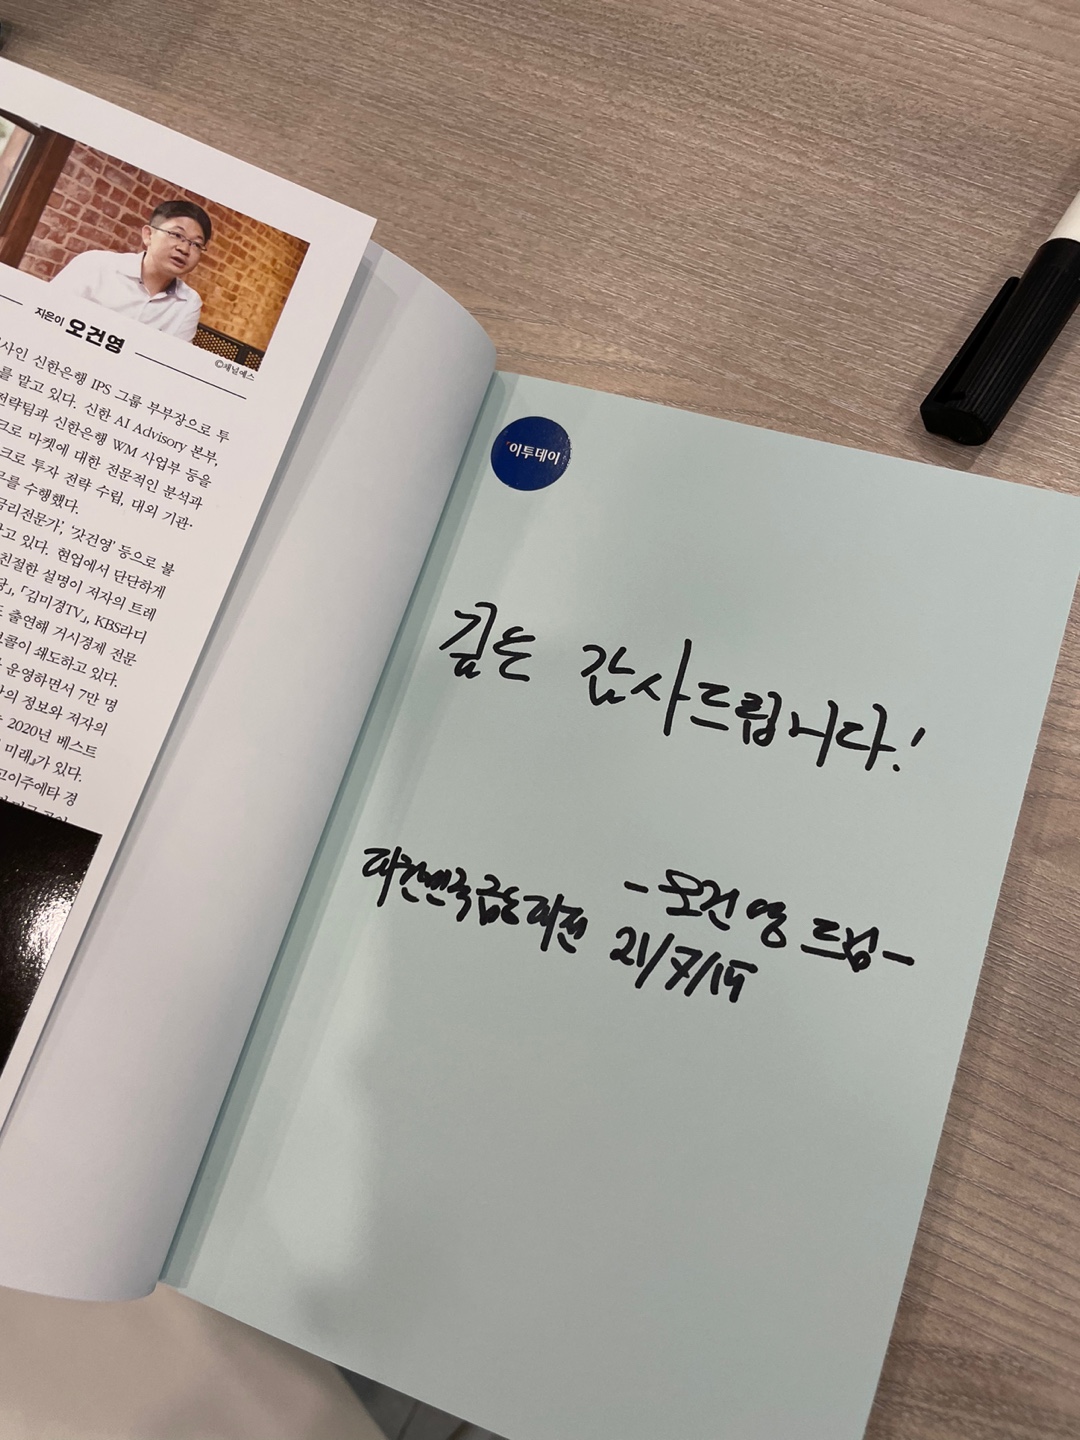 지은이 오건영
©채널예스
사인 신한은행 IPS 그룹 부부장으로 투
를 맡고 있다. 신한 AI Advisory 본부,
전략팀과 신한은행 WM 사업부 등을
크로 마켓에 대한 전문적인 분석과
크로 투자 전략 수립, 대외 기관·
무를 수행했다.
금리전문가', '갓건영' 등으로 불
고 있다. 현업에서 단단하게
친절한 설명이 저자의 트레
당」, 「김미경TV」, KBS라디
도 출연해 거시경제 전문
브콜이 쇄도하고 있다.
운영하면서 7만 명
의 정보와 저자의
2020년 베스트
미래』가 있다.
고이주에타 경
이투데이
깊은 감사드립니다!
대한민국 금융대전
-오건영 드림-
21/7/15